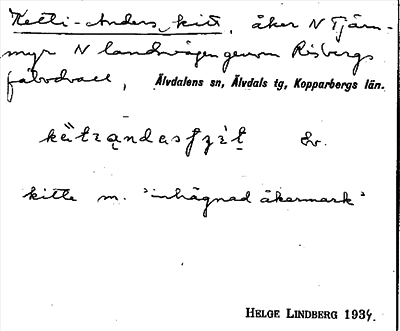 Ketti-Anders kitt, åker N Tjärn-
myr N landsvägen genom Risbergs
fäbodvall, Älvdalens sn, Älvdals tg, Kopparbergs län.
Ev.
kitte m. 'inhägnad åkermark'
HELGE LINDBERG 1934.